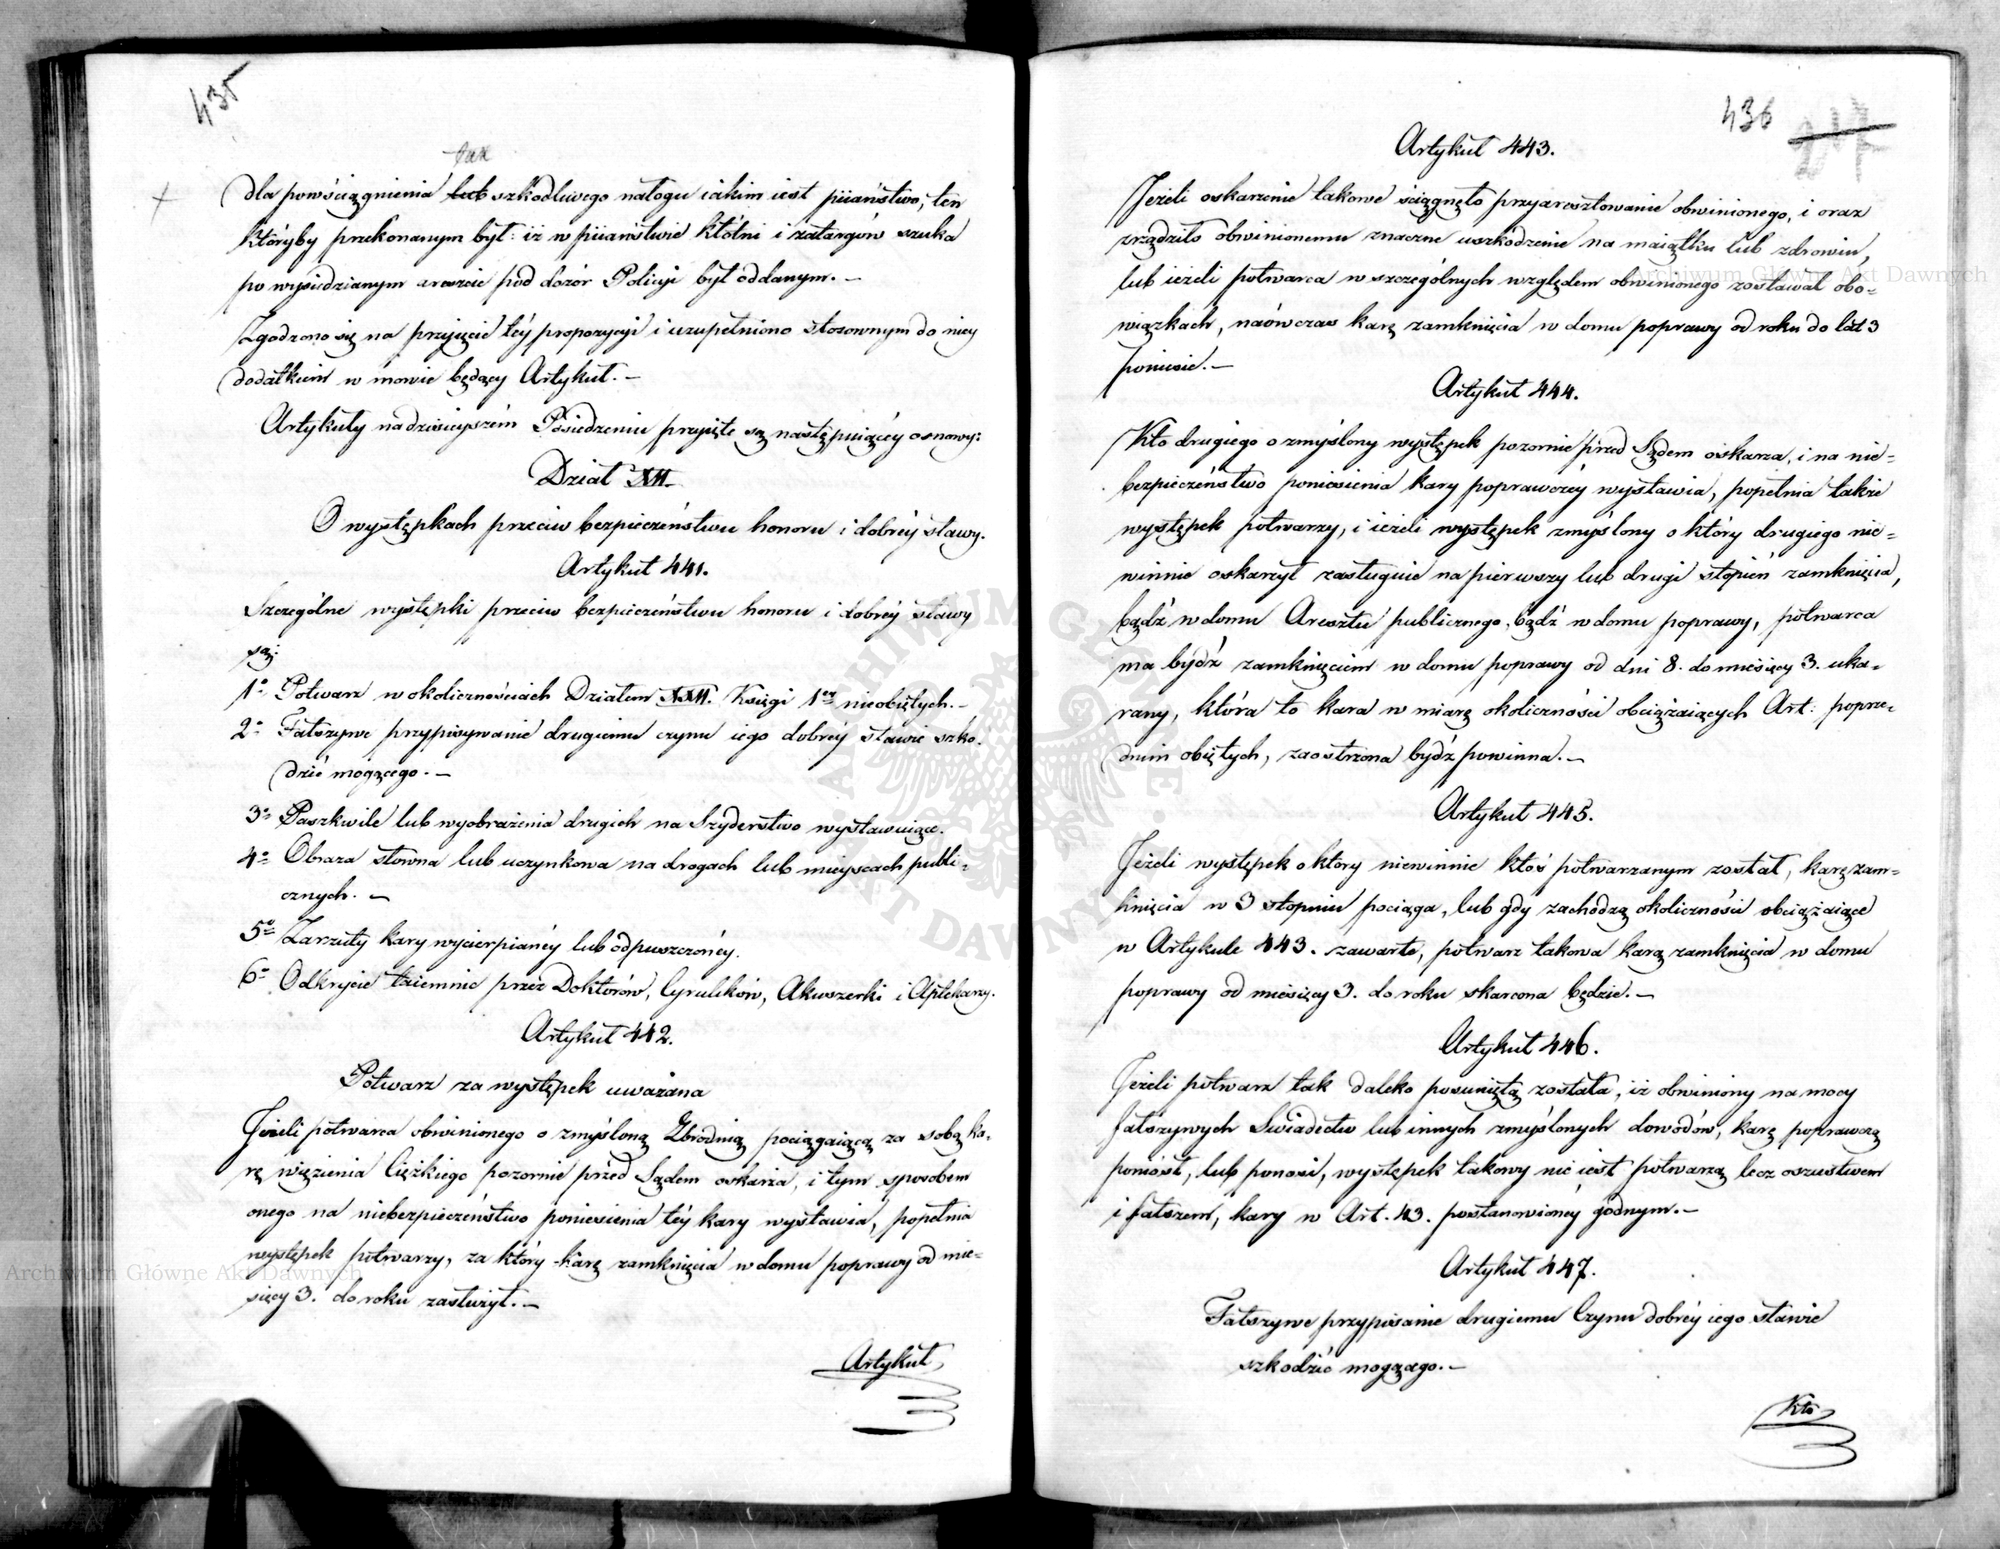 435
tak
dla powściągnienia lub szkodliwego nałogu iakim iest piiaństwo, ten
któryby przekonanym był: iż w piiaństwie kłótni i zatargów szuka
po wysiedzianym areszcie pod dozór Policyi był oddanym. –
Zgodzono się na przyięcie téy propozycyi i uzupełniono stosownym do niey
dodatkiem w mowie będący Artykuł. –
Artykuły na dzisieyszém Posiedzeniu przyięte są następuiącéy osnowy:
Dział XII.
O występkach przeciw bezpieczeństwu honoru i dobréy sławy.
Artykuł 441.
Szczególne występki przeciw bezpieczeństwu honoru i dobréy sławy
są:
1o Potwarz w okolicznościach Działem XXII. Księgi 1éy nieobiętych. –
2o Fałszywe przypisywanie drugiemu czynu iego dobréy sławie szko-
dzić mogącego. –
3o Paszkwile lub wyobrażenia drugich na Szyderstwo wystawuiące.
4o Obraza słowna lub uczynkowa na drogach lub mieyscach publi-
cznych. –
5o Zarzuty kary wycierpianéy lub odpuszczonéy.
6o Odkrycie taiemnic przez Doktorów, Cyrulików, Akuszerki i Aptekarzy.
Artykuł 442.
Potwarz za występek uważana
Jeżeli potwarca obwinionego o zmyśloną Zbrodnią pociągaiącą za sobą ka-
rę więzienia Ciężkiego pozornie przed Sądem oskarża, i tym sposobem
onego na niebezpieczeństwo poniesienia téy kary wystawia, popełnia
występek potwarzy, za który karę zamknięcia w domu poprawy od mie-
sięcy 3. do roku zasłużył. –
Artykuł
436
217
Artykuł 443.
Jeżeli oskarżenie takowe ściągnęło przyaresztowanie obwinionego, i oraz
zrządziło obwinionemu znaczne uszkodzenie na maiątku lub zdrowiu,
lub ieżeli potwarca w szczególnych względem obwinionego zostawał obo-
wiązkach, naówczas karę zamknięcia w domu poprawy od roku do lat 3
poniesie. –
Artykuł 444.
Kto drugiego o zmyślony występek pozornie przed Sądem oskarża, i na nie-
bezpieczeństwo poniesienia kary poprawczéy wystawia, popełnia także
występek potwarzy, i ieżeli występek zmyślony o który drugiego nie-
winnie oskarżył zasługuie na pierwszy lub drugi stopień zamknięcia,
bądź w domu Aresztu publicznego, bądź w domu poprawy, potwarca
ma bydź zamknięciem w domu poprawy od dni 8. do miesięcy 3. uka-
rany, która to kara w miarę okoliczności obciążaiących Art: poprze-
dnim obiętych, zaostrzona bydź powinna. –
Artykuł 445.
Jeżeli występek o który niewinnie ktoś potwarzanym został, karę zam-
knięcia w 3 stopniu pociąga, lub gdy zachodzą okoliczności obciążaiące
w Artykule 443. zawarte, potwarz takowa karą zamknięcia w domu
poprawy od miesięcy 3. do roku skarcona będzie. –
Artykuł 446.
Jeżeli potwarz tak daleko posuniętą została, iż obwiniony na mocy
fałszywych Świadectw lub innych zmyślonych dowodów, karę poprawczą
poniósł, lub ponosi, występek takowy nie iest potwarzą lecz oszustwem
i fałszem, kary w Art. 43. postanowionéy godnym. –
Artykuł 447.
Fałszywe przypisanie drugiemu Czynu dobréy iego sławie
szkodzić mogącego. –
Kto
Archiwum Główne Akt Dawnych
Archiwum Główne Akt Dawnych
ARCHIWUM GŁÓWNE AKT DAWNYCH